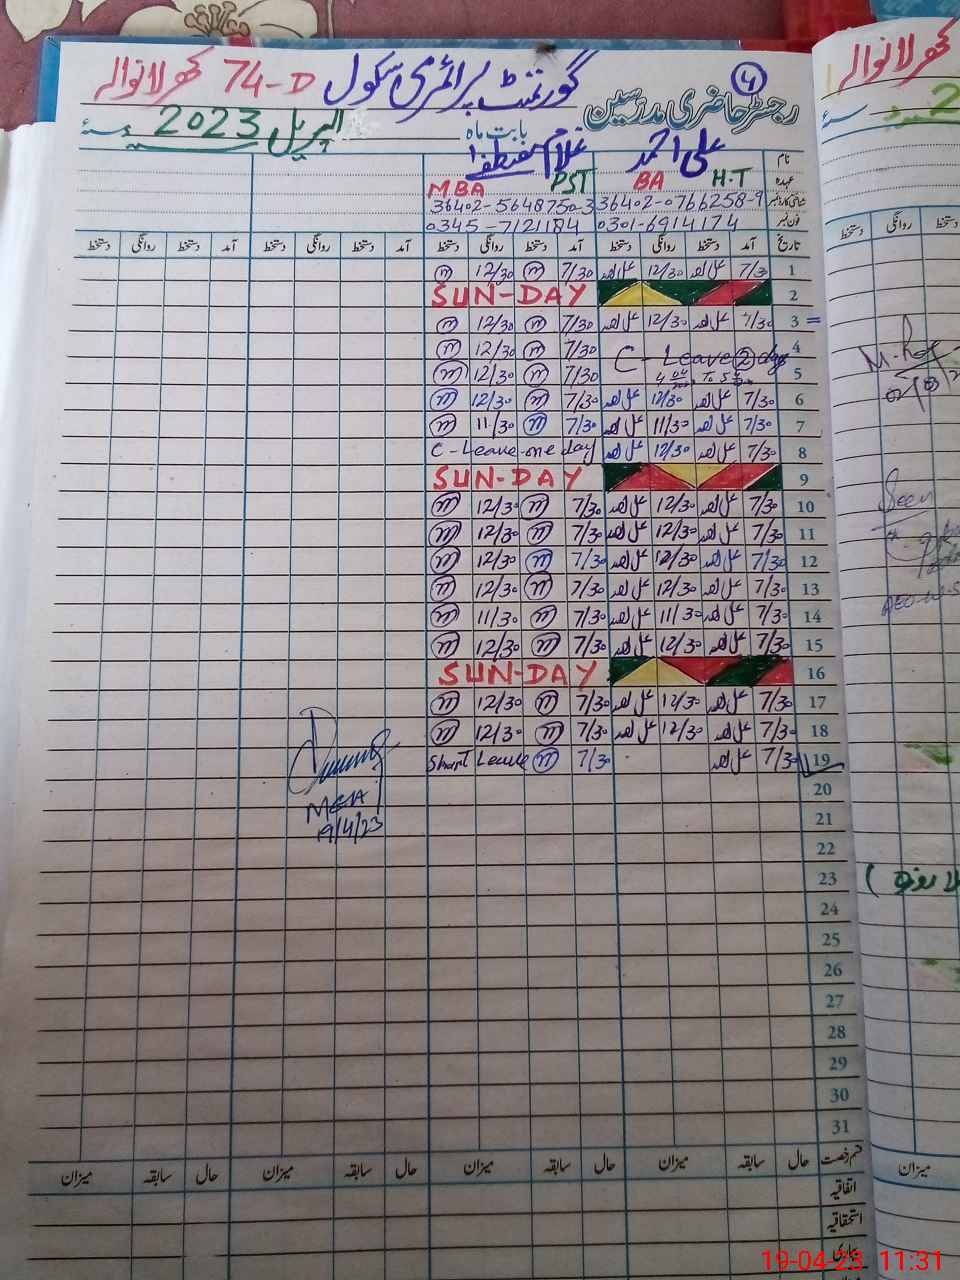 گورنمنٹ پرائمری سکول 74-D کھرلانوالہ
4
رجسٹر حاضری مدرسین
بابت ماہ اپریل 2023
نام علی احمد غلام مصطفٰے
عہدہ H.T BA PST MBA
36402-0766258-9 36402-5648750-3
فون نمبر 0301-6914174 0345-7121184
تاریخ آمد دستخط روانگی دستخط آمد دستخط روانگی دستخط آمد دستخط روانگی دستخط آمد دستخط روانگی دستخط
1 7/30 علی احمد 12/30 علی احمد 7/30 m 12/30 m
2 SUN-DAY
3 7/30 علی احمد 12/30 علی احمد 7/30 m 12/30 m
4 C-Leave 2 days 7/30 m 12/30 m
5 To 7/30 m 12/30 m
6 7/30 علی احمد 12/30 علی احمد 7/30 m 12/30 m
7 7/30 علی احمد 11/30 علی احمد 7/30 m 11/30 m
8 7/30 علی احمد 12/30 علی احمد C-Leave one day
9 SUN-DAY
10 7/30 علی احمد 12/30 علی احمد 7/30 m 12/30 m
11 7/30 علی احمد 12/30 علی احمد 7/30 m 12/30 m
12 7/30 علی احمد 12/30 علی احمد 7/30 m 12/30 m
13 7/30 علی احمد 12/30 علی احمد 7/30 m 12/30 m
14 7/30 علی احمد 11/30 علی احمد 7/30 m 11/30 m
15 7/30 علی احمد 12/30 علی احمد 7/30 m 12/30 m
16 SUN-DAY
17 7/30 علی احمد 12/30 علی احمد 7/30 m 12/30 m
18 7/30 علی احمد 12/30 علی احمد 7/30 m 12/30 m
19 7/30 علی احمد 7/30 m Short Leave
MEA
19/4/23
20
21
22
23
24
25
26
27
28
29
30
31
قسم رخصت حال سابقہ میزان حال سابقہ میزان حال سابقہ میزان حال سابقہ میزان
اتفاقیہ
استحقاقیہ
بیماری
کھرلانوالہ
2
روانگی دستخط
Seen
میزان
19-04-23 11:31